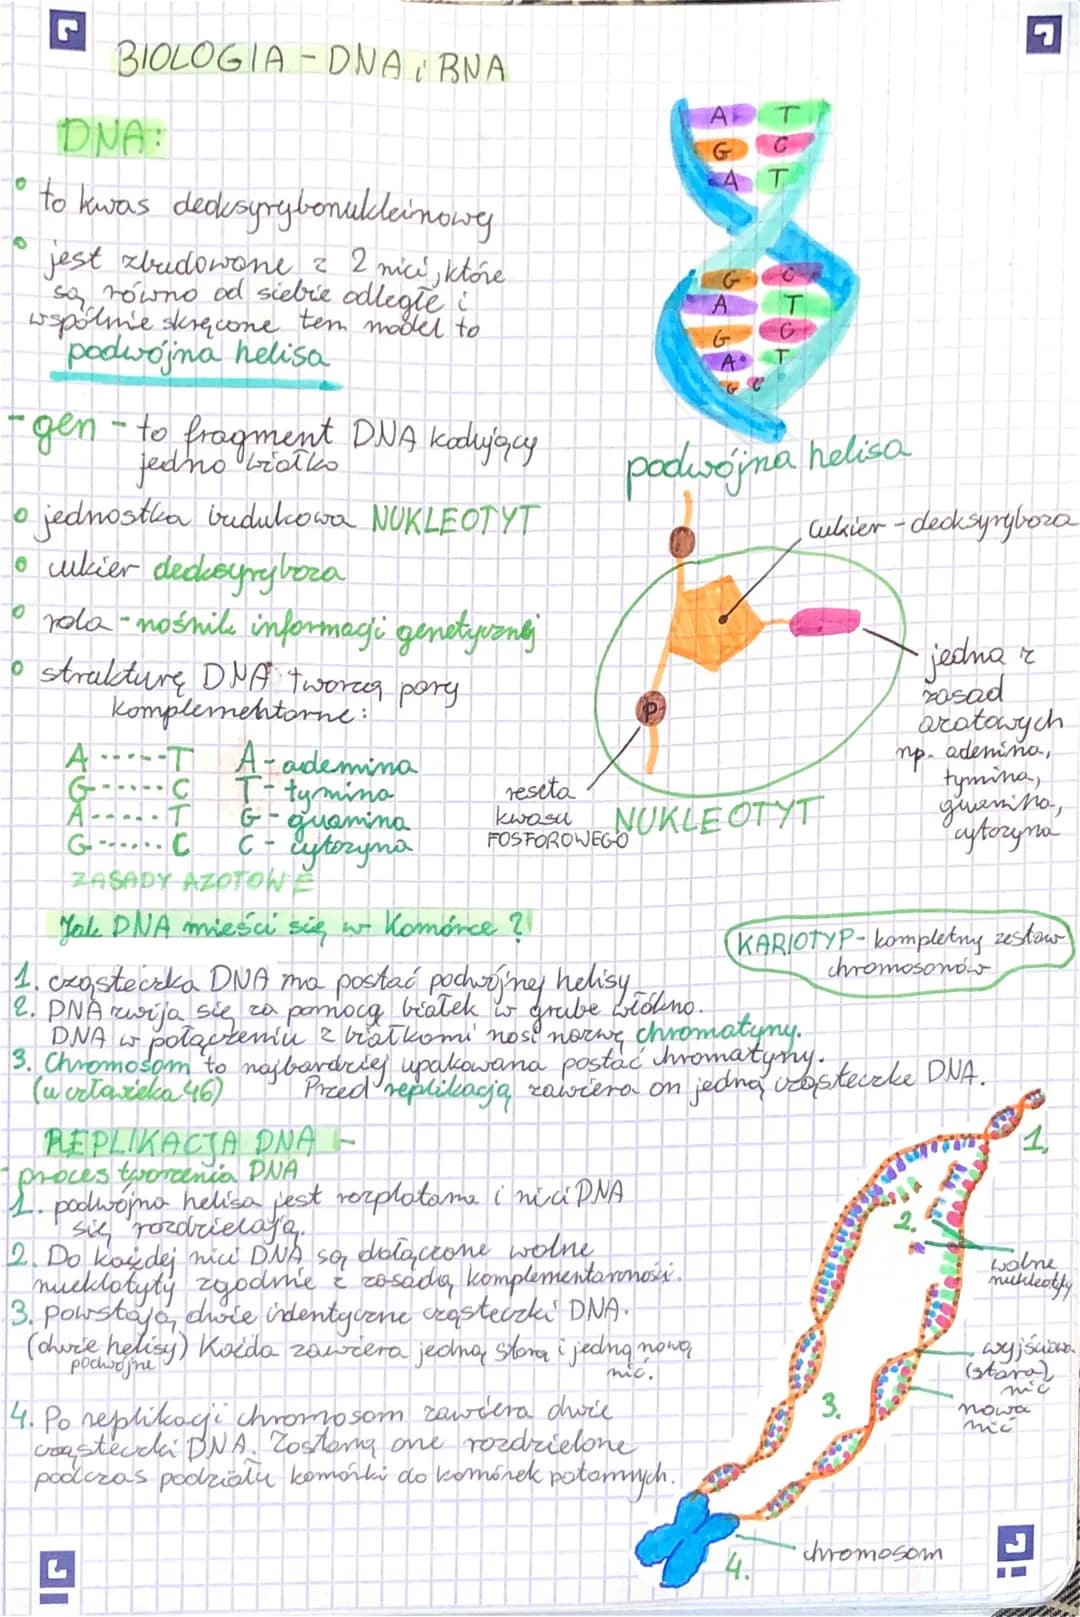 BIOLOGIA - DNA i RNA
DNA:
to kwas deoksyrybonukleinowy
jest zbudowane z 2 nici, które
są równo od siebie odległe i
wspólnie skręcone ten model to
podwójna helisa
- gen - to fragment DNA kodujący
jedno białko
jednostka budulcowa NUKLEOTYT
cukier deoksyryboza
rola - nośnik informacji genetycznej
strukturę DNA tworzą pary
komplementarne:
A ------ T A - adenina
G ------ C T - tymina
A ------ T G - guanina
G ------ C C - cytozyna
ZASADY AZOTOWE
A T
G C
A T
G C
A T
G C
A T
G C
podwójna helisa
cukier - deoksyryboza
P
jedna z
zasad
azotowych
np. adenina,
tymina,
guanina,
cytozyna
reszta
kwasu
FOSFOROWEGO
NUKLEOTYT
Jak DNA mieści się w Komórce?
KARIOTYP - kompletny zestaw
chromosonów
1. cząsteczka DNA ma postać podwójnej helisy
2. DNA zwija się za pomocą białek w grube włókno.
DNA w połączeniu z białkami nosi nazwę chromatyny.
3. Chromosom to najbardziej upakowana postać chromatyny.
(u człowieka 46) Przed replikacją zawiera on jedną cząsteczkę DNA.
REPLIKACJA DNA -
- proces tworzenia DNA
1. podwójna helisa jest rozplatana i nici DNA
się rozdzielają.
2. Do każdej nici DNA są dołączone wolne
nuklotyty zgodnie z zasadą komplementarności.
3. Powstają dwie identyczne cząsteczki DNA.
(dwie helisy) Każda zawiera jedną starą i jedną nową
podwójne nić.
4. Po replikacji chromosom zawiera dwie
cząsteczki DNA. Zostaną one rozdzielone
podczas podziału komórki do komórek potomnych.
1.
2.
wolne
nukleotyty
wyjściowa
(stara)
nić
3.
nowa
nić
4.
chromosom